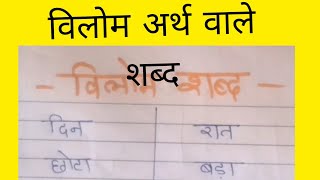 विलोम अर्थ वाले
शब्द
- विलोम शब्द -
दिन रात
छोटा बड़ा